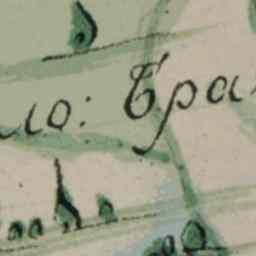 ло: Бра